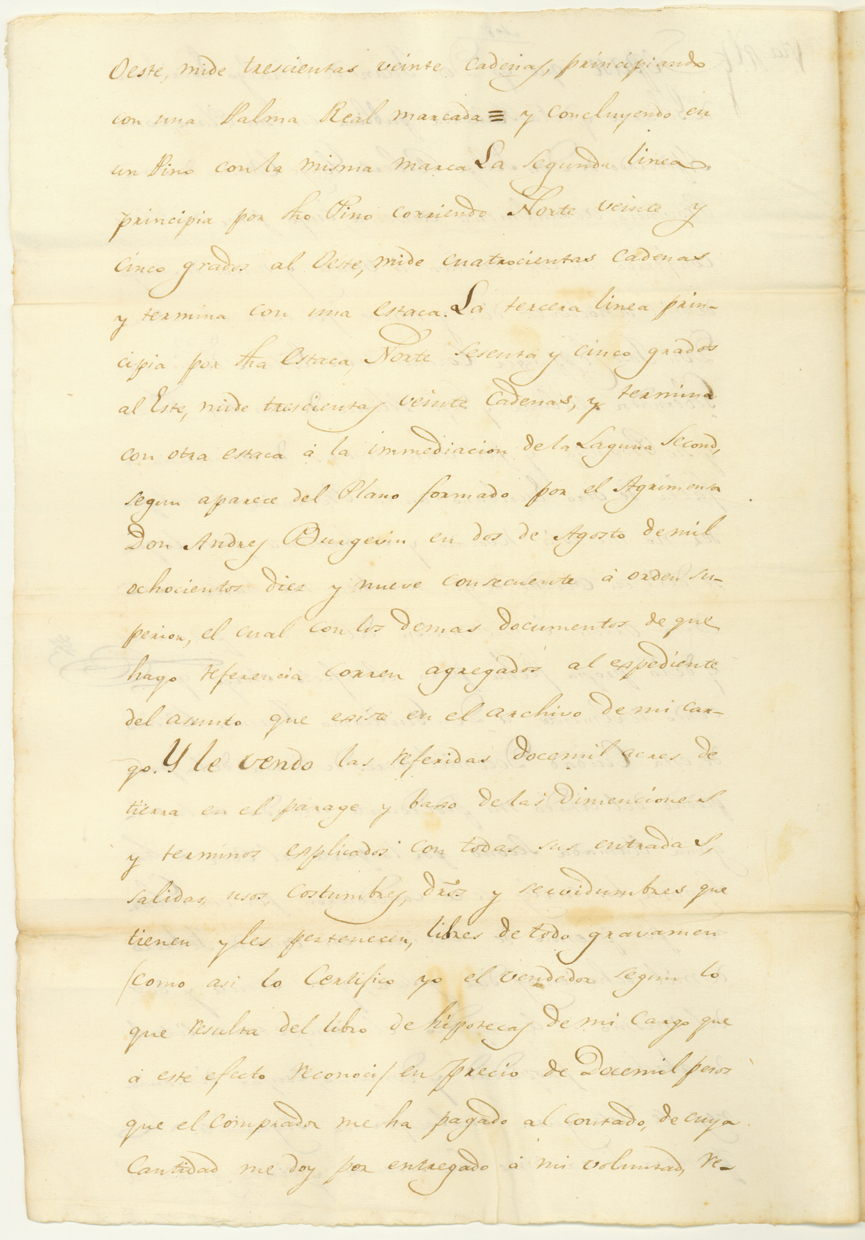 Oeste, mide trescientas veinte cadenas, principiando
con una Palma Real marcada ≡ y concluyendo en
un Pino con la misma marca La segunda linea
principia por dho Pino corriendo Norte veinte y
cinco grados al Oeste, mide cuatrocientas cadenas
y termina con una estaca. La tercera linea prin-
cipia por dha estaca Norte sesenta y cinco grados
al Este, mide trescientas veinte Cadenas, y termina
con otra estaca á la immediacion de la Laguna Second,
segun aparece del Plano formado por el Agrimensor
Don Andres Burgevin en dos de Agosto de mil
ochocientos diez y nueve consecuente á orden su-
perior, el cual con los demas documentos de que
hago referencia corren agregados al espediente
del asunto que existe en el archivo de mi car-
go. Y le vendo las referidas docemil acres de
tierra en el parage y baxo de las dimenciones
y terminos esplicados con todas sus entradas,
salidas, usos, costumbres, dros y servidumbres que
tienen y les pertenecen, libres de todo gravamen
(como asi lo Certifico yo el vendedor segun lo
que resulta del libro de hipotecas de mi cargo que
á este efecto reconoci) en precio de Docemil pesos
que el comprador me ha pagado al contado, de cuya
Cantidad me doy por entregado á mi voluntad, re-